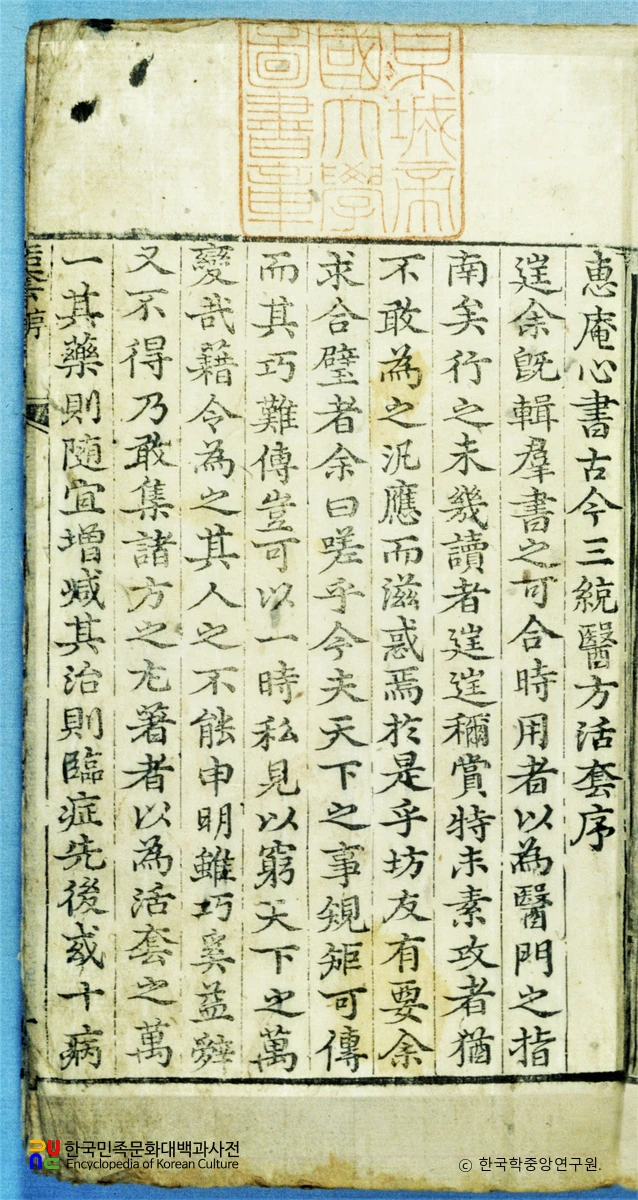 京城帝
國大學
圖書章
惠庵心書古今三統醫方活套序
𨓏余旣輯羣書之可合時用者以為醫門之指
南矣行之未幾讀者𨓏𨓏稱賞特未素攻者猶
不敢為之汎應而滋惑焉於是乎坊友有要余
求合璧者余曰嗟乎今夫天下之事䂓矩可傳
而其巧難傳豈可以一時私見以窮天下之萬
變哉藉令為之其人之不能申明雖巧奚益辤
又不得乃敢集諸方之尤著者以為活套之萬
一其藥則隨宜增减其治則臨症先後或十病
한국민족문화대백과사전
Encyclopedia of Korean Culture
© 한국학중앙연구원.